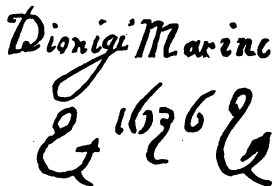 Dionigi Marino
1636